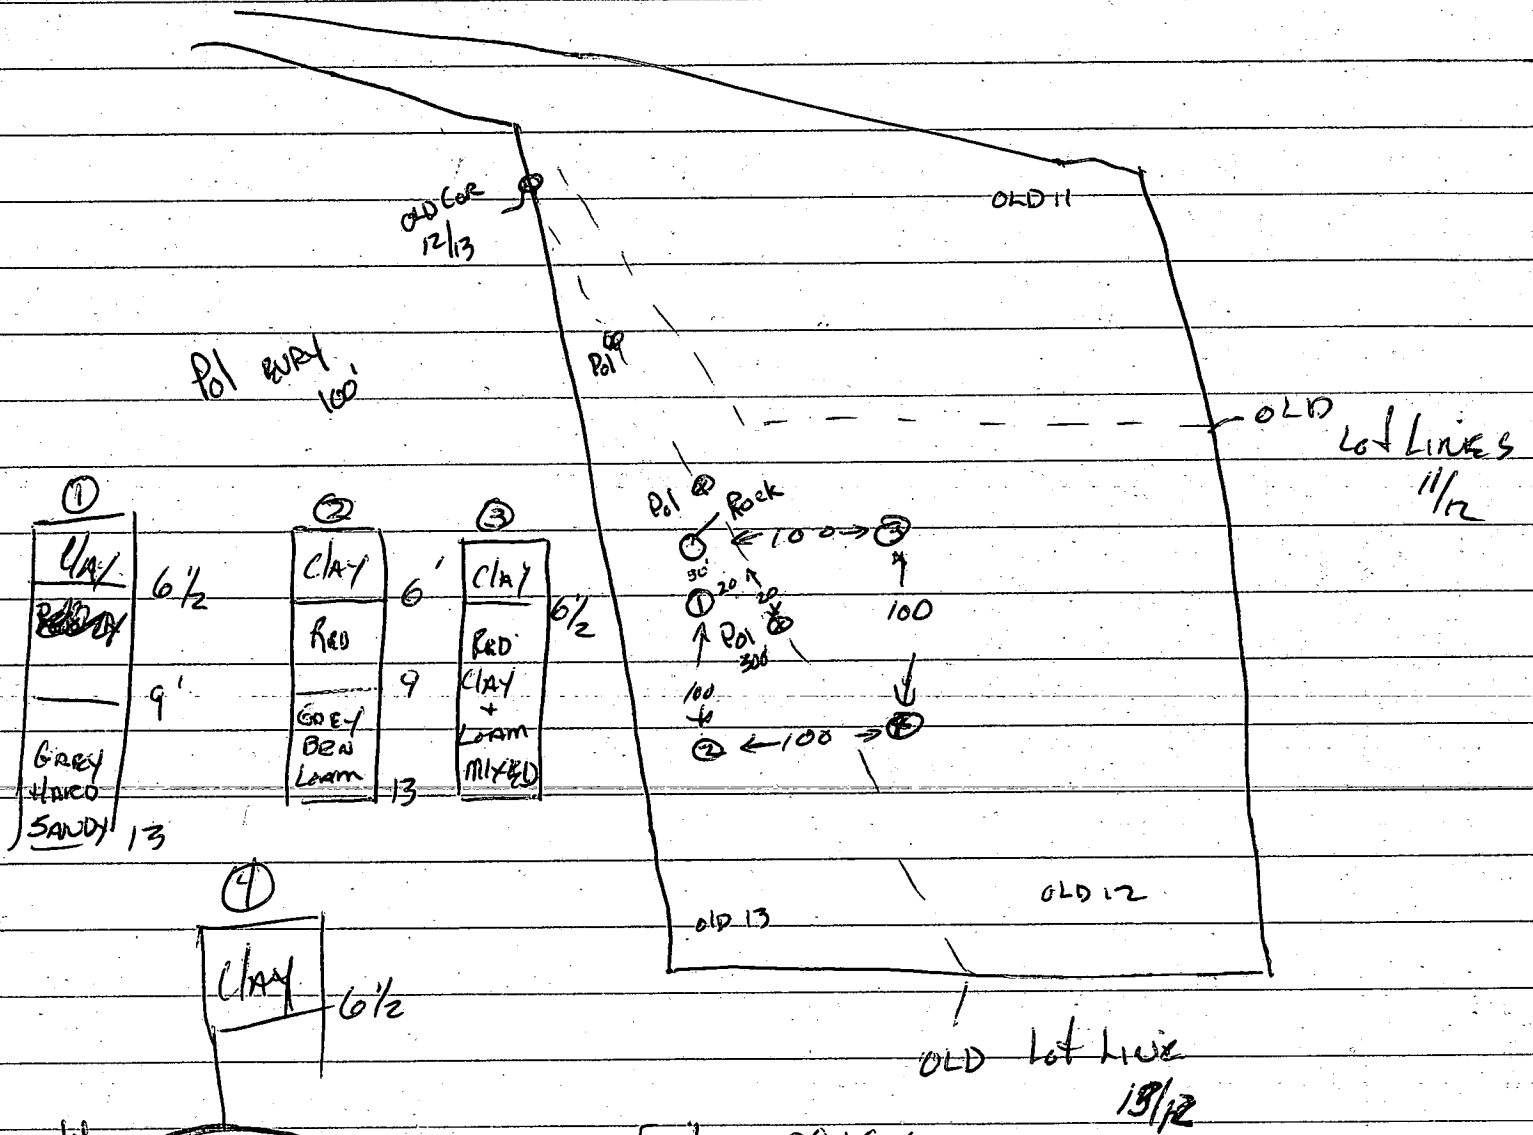 OLD 11
OLD COR
12/13
Pol
Pol EVRY
100'
OLD
Lot LINES
11/12
Pol
Rock
←100→ 3
30'
1
20
20
Pol
300'
100
100
2 ←100→ 4
1
Clay
6 1/2
9'
GREY
HARD
SANDY
13
2
Clay
6'
RED
9
GREY
BRN
Loam
13
3
Clay
6 1/2
RED
Clay
+
Loam
MIXED
4
Clay
6 1/2
OLD 13
OLD 12
OLD Lot Line
13/12